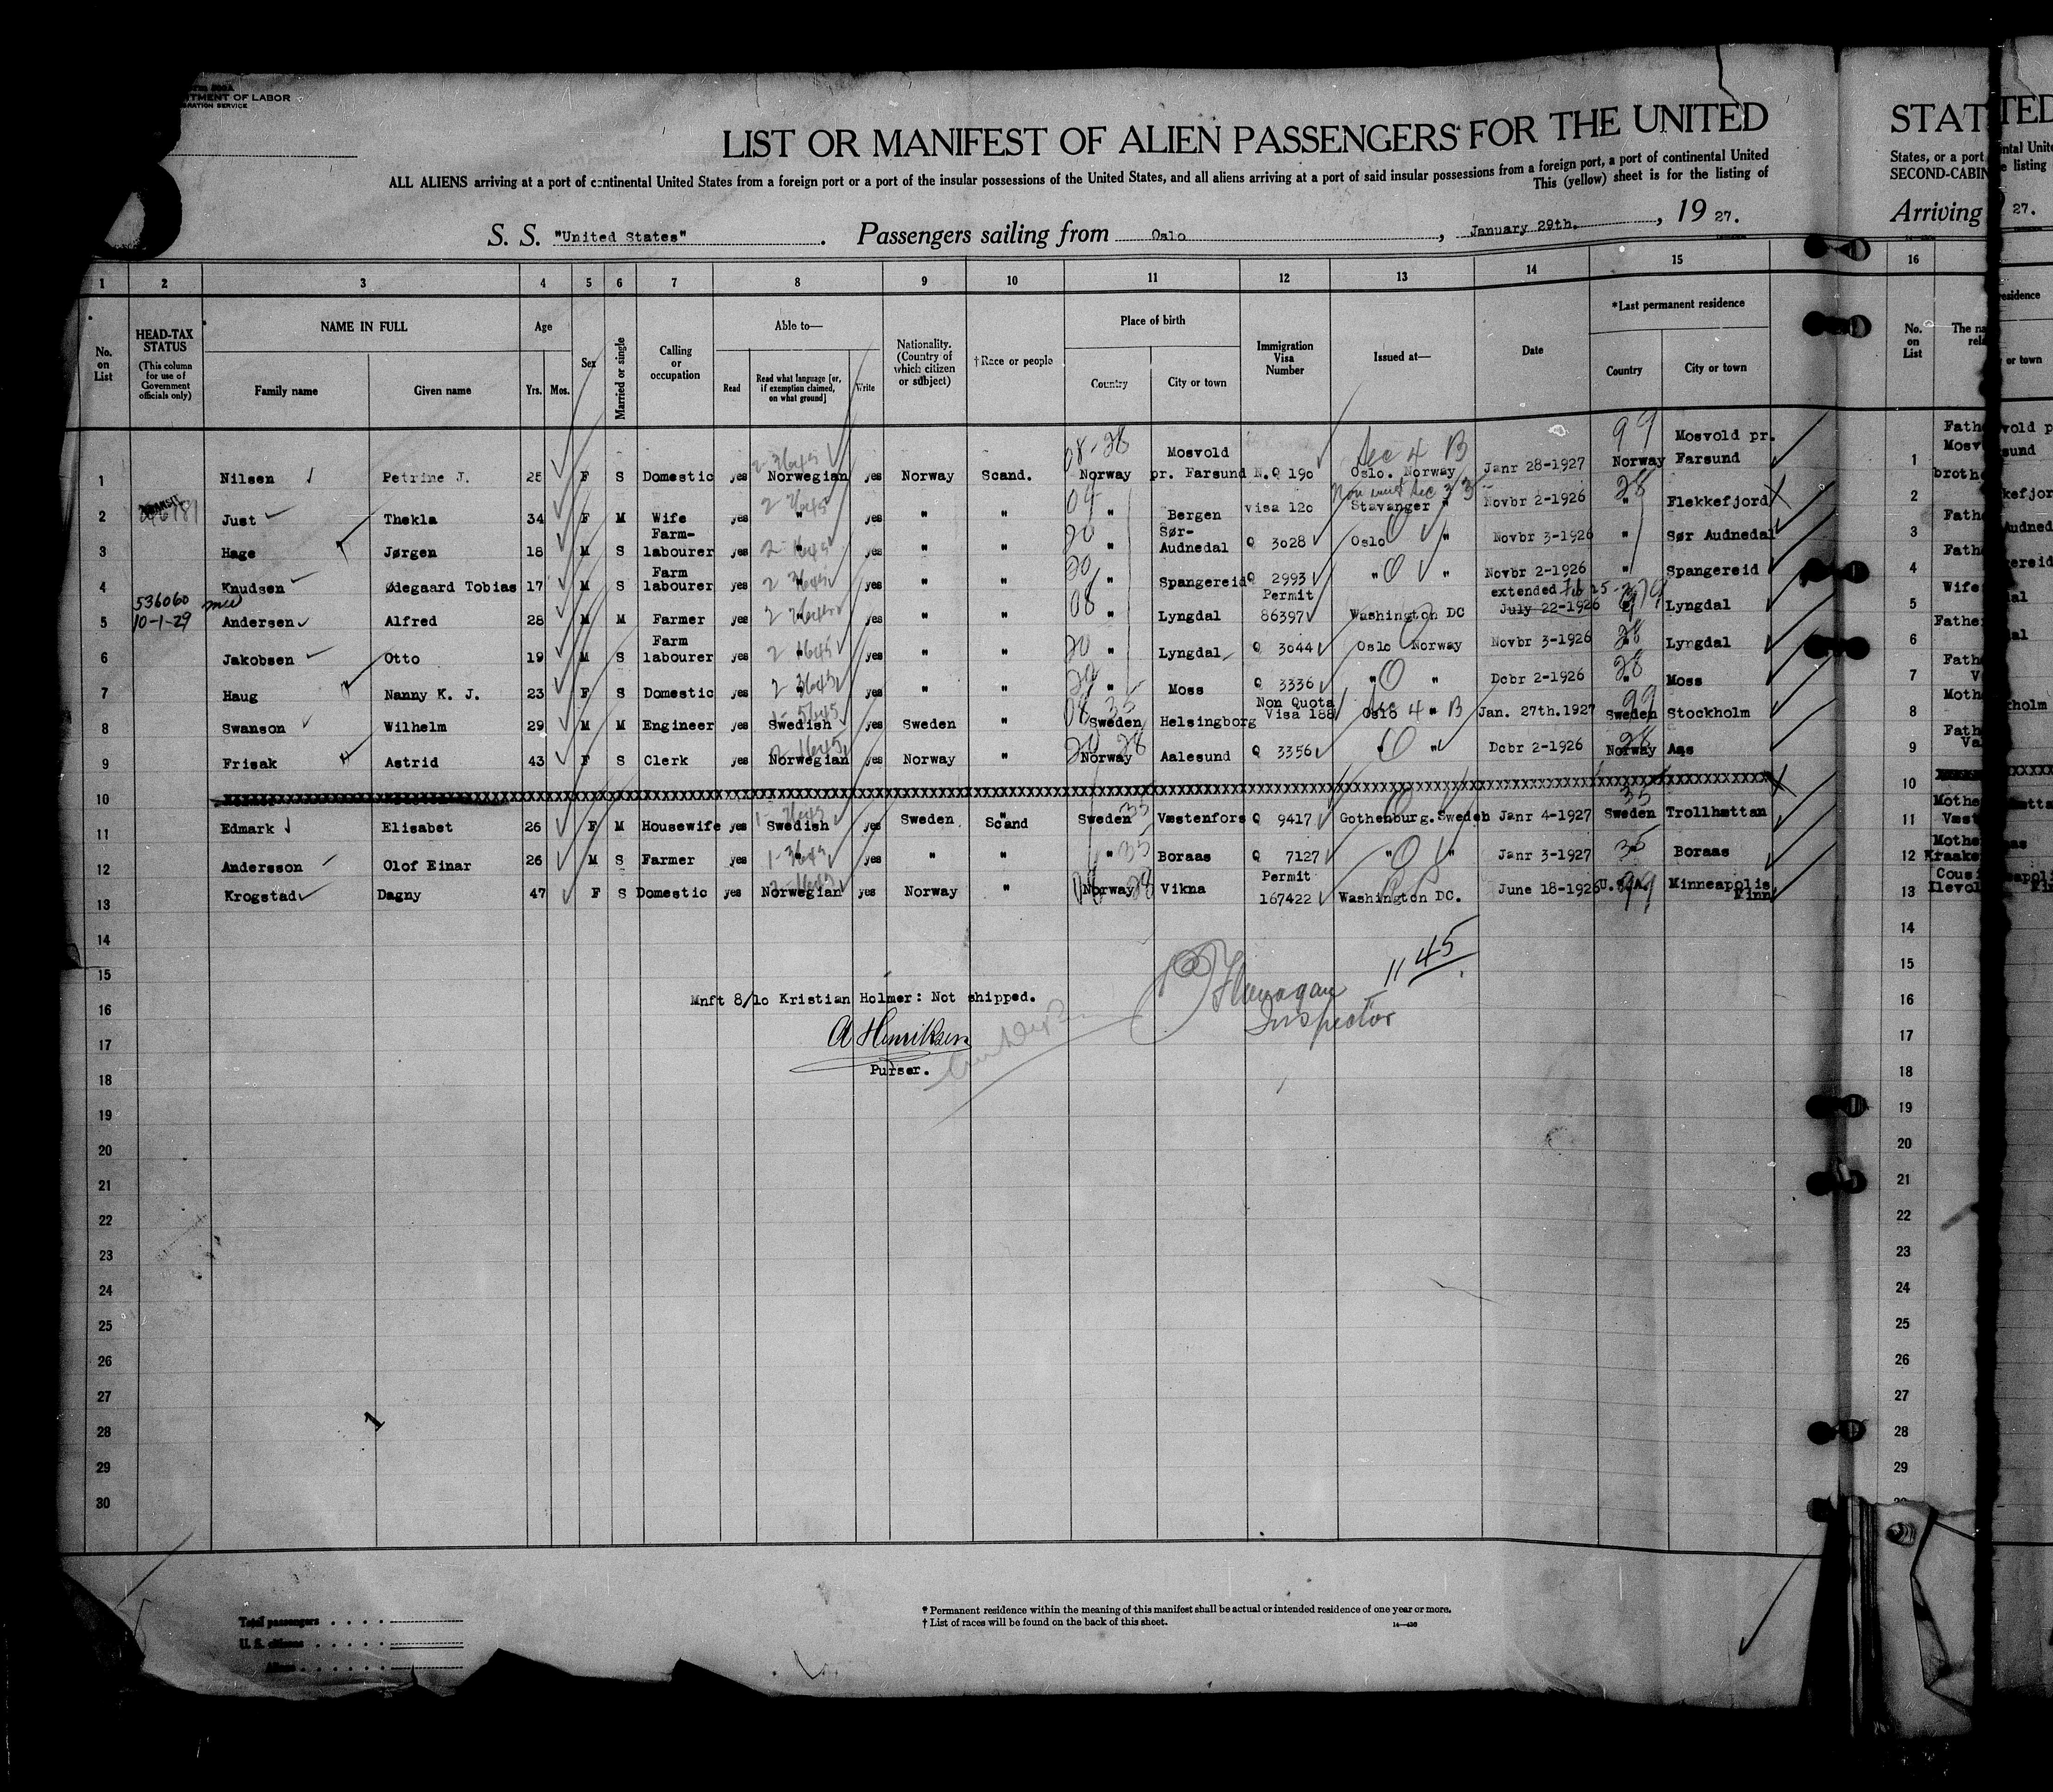 TMENT OF LABOR
RATION SERVICE
LIST OR MANIFEST OF ALIEN PASSENGERS FOR THE UNITED
STAT
ALL ALIENS arriving at a port of continental United States from a foreign port or a port of the insular possessions of the United States, and all aliens arriving at a port of said insular possessions from a foreign port, a port of continental United
States, or a port
This (yellow) sheet is for the listing of
SECOND-CABIN
S. S. "United States". Passengers sailing from Oslo, January 29th., 19 27.
Arriving 27.
1 2 3 4 5 6 7 8 9 10 11 12 13 14 15 16
No. on List
HEAD-TAX STATUS (This column for use of Government officials only)
NAME IN FULL Family name Given name
Age Yrs. Mos.
Sex
Married or single
Calling or occupation
Able to— Read Read what language [or, if exemption claimed, on what ground] Write
Nationality. (Country of which citizen or subject)
† Race or people
Place of birth Country City or town
Immigration Visa Number
Issued at—
Date
*Last permanent residence Country City or town
No. on List
1 Nilsen Petrine J. 25 F S Domestic yes Norwegian yes Norway Scand. 08-28 Norway Mosvold pr. Farsund N.Q 190 Sec 4 B Oslo. Norway Janr 28-1927 99 Norway Mosvold pr. Farsund 1
2 TRANSIT Just Thekla 34 F M Wife yes " yes " " " Bergen visa 120 Stavanger " Novbr 2-1926 28 " Flekkefjord 2
3 Hage Jørgen 18 M S Farm-labourer yes " yes " " 20 " Sør-Audnedal Q 3028 Oslo " Novbr 3-1926 " Sør Audnedal 3
4 Knudsen Ødegaard Tobias 17 M S Farm labourer yes " yes " " 20 " Spangereid Q 2993 " " Novbr 2-1926 " Spangereid 4
5 536060 10-1-29 Andersen Alfred 28 M M Farmer yes " yes " " 08 " Lyngdal Permit 86397 Washington DC extended July 22-1926 Lyngdal 5
6 Jakobsen Otto 19 M S Farm labourer yes " yes " " 20 " Lyngdal Q 3044 Oslo Norway Novbr 3-1926 28 " Lyngdal 6
7 Haug Nanny K. J. 23 F S Domestic yes " yes " " " Moss Q 3336 " " Dcbr 2-1926 28 " Moss 7
8 Swanson Wilhelm 29 M M Engineer yes Swedish yes Sweden " Sweden Helsingborg Non Quota Visa 188 Oslo " Sec 4 B Jan. 27th.1927 99 Sweden Stockholm 8
9 Frisak Astrid 43 F S Clerk yes Norwegian yes Norway " 20 28 Norway Aalesund Q 3356 " " Dcbr 2-1926 28 Norway Aas 9
10 10
11 Edmark Elisabet 26 F M Housewife yes Swedish yes Sweden Scand Sweden 35 Væstenfors Q 9417 Gothenburg.Sweden Janr 4-1927 35 Sweden Trollhættan 11
12 Andersson Olof Einar 26 M S Farmer yes " yes " " " 35 Boraas Q 7127 " " Janr 3-1927 35 Boraas 12
13 Krogstad Dagny 47 F S Domestic yes Norwegian yes Norway " Norway 28 Vikna Permit 167422 Washington DC. June 18-1926 U.S.A. 99 Minneapolis Minn 13
14 14
15 15
16 Mnft 8/10 Kristian Holmer: Not shipped. 16
11 45
Flanagan
Inspector
17 A Henriksen 17
18 Purser. 18
19 19
20 20
21 21
22 22
23 23
24 24
25 25
26 26
27 27
28 28
29 29
30
Total passengers
U. S. citizens
Aliens
* Permanent residence within the meaning of this manifest shall be actual or intended residence of one year or more.
† List of races will be found on the back of this sheet.